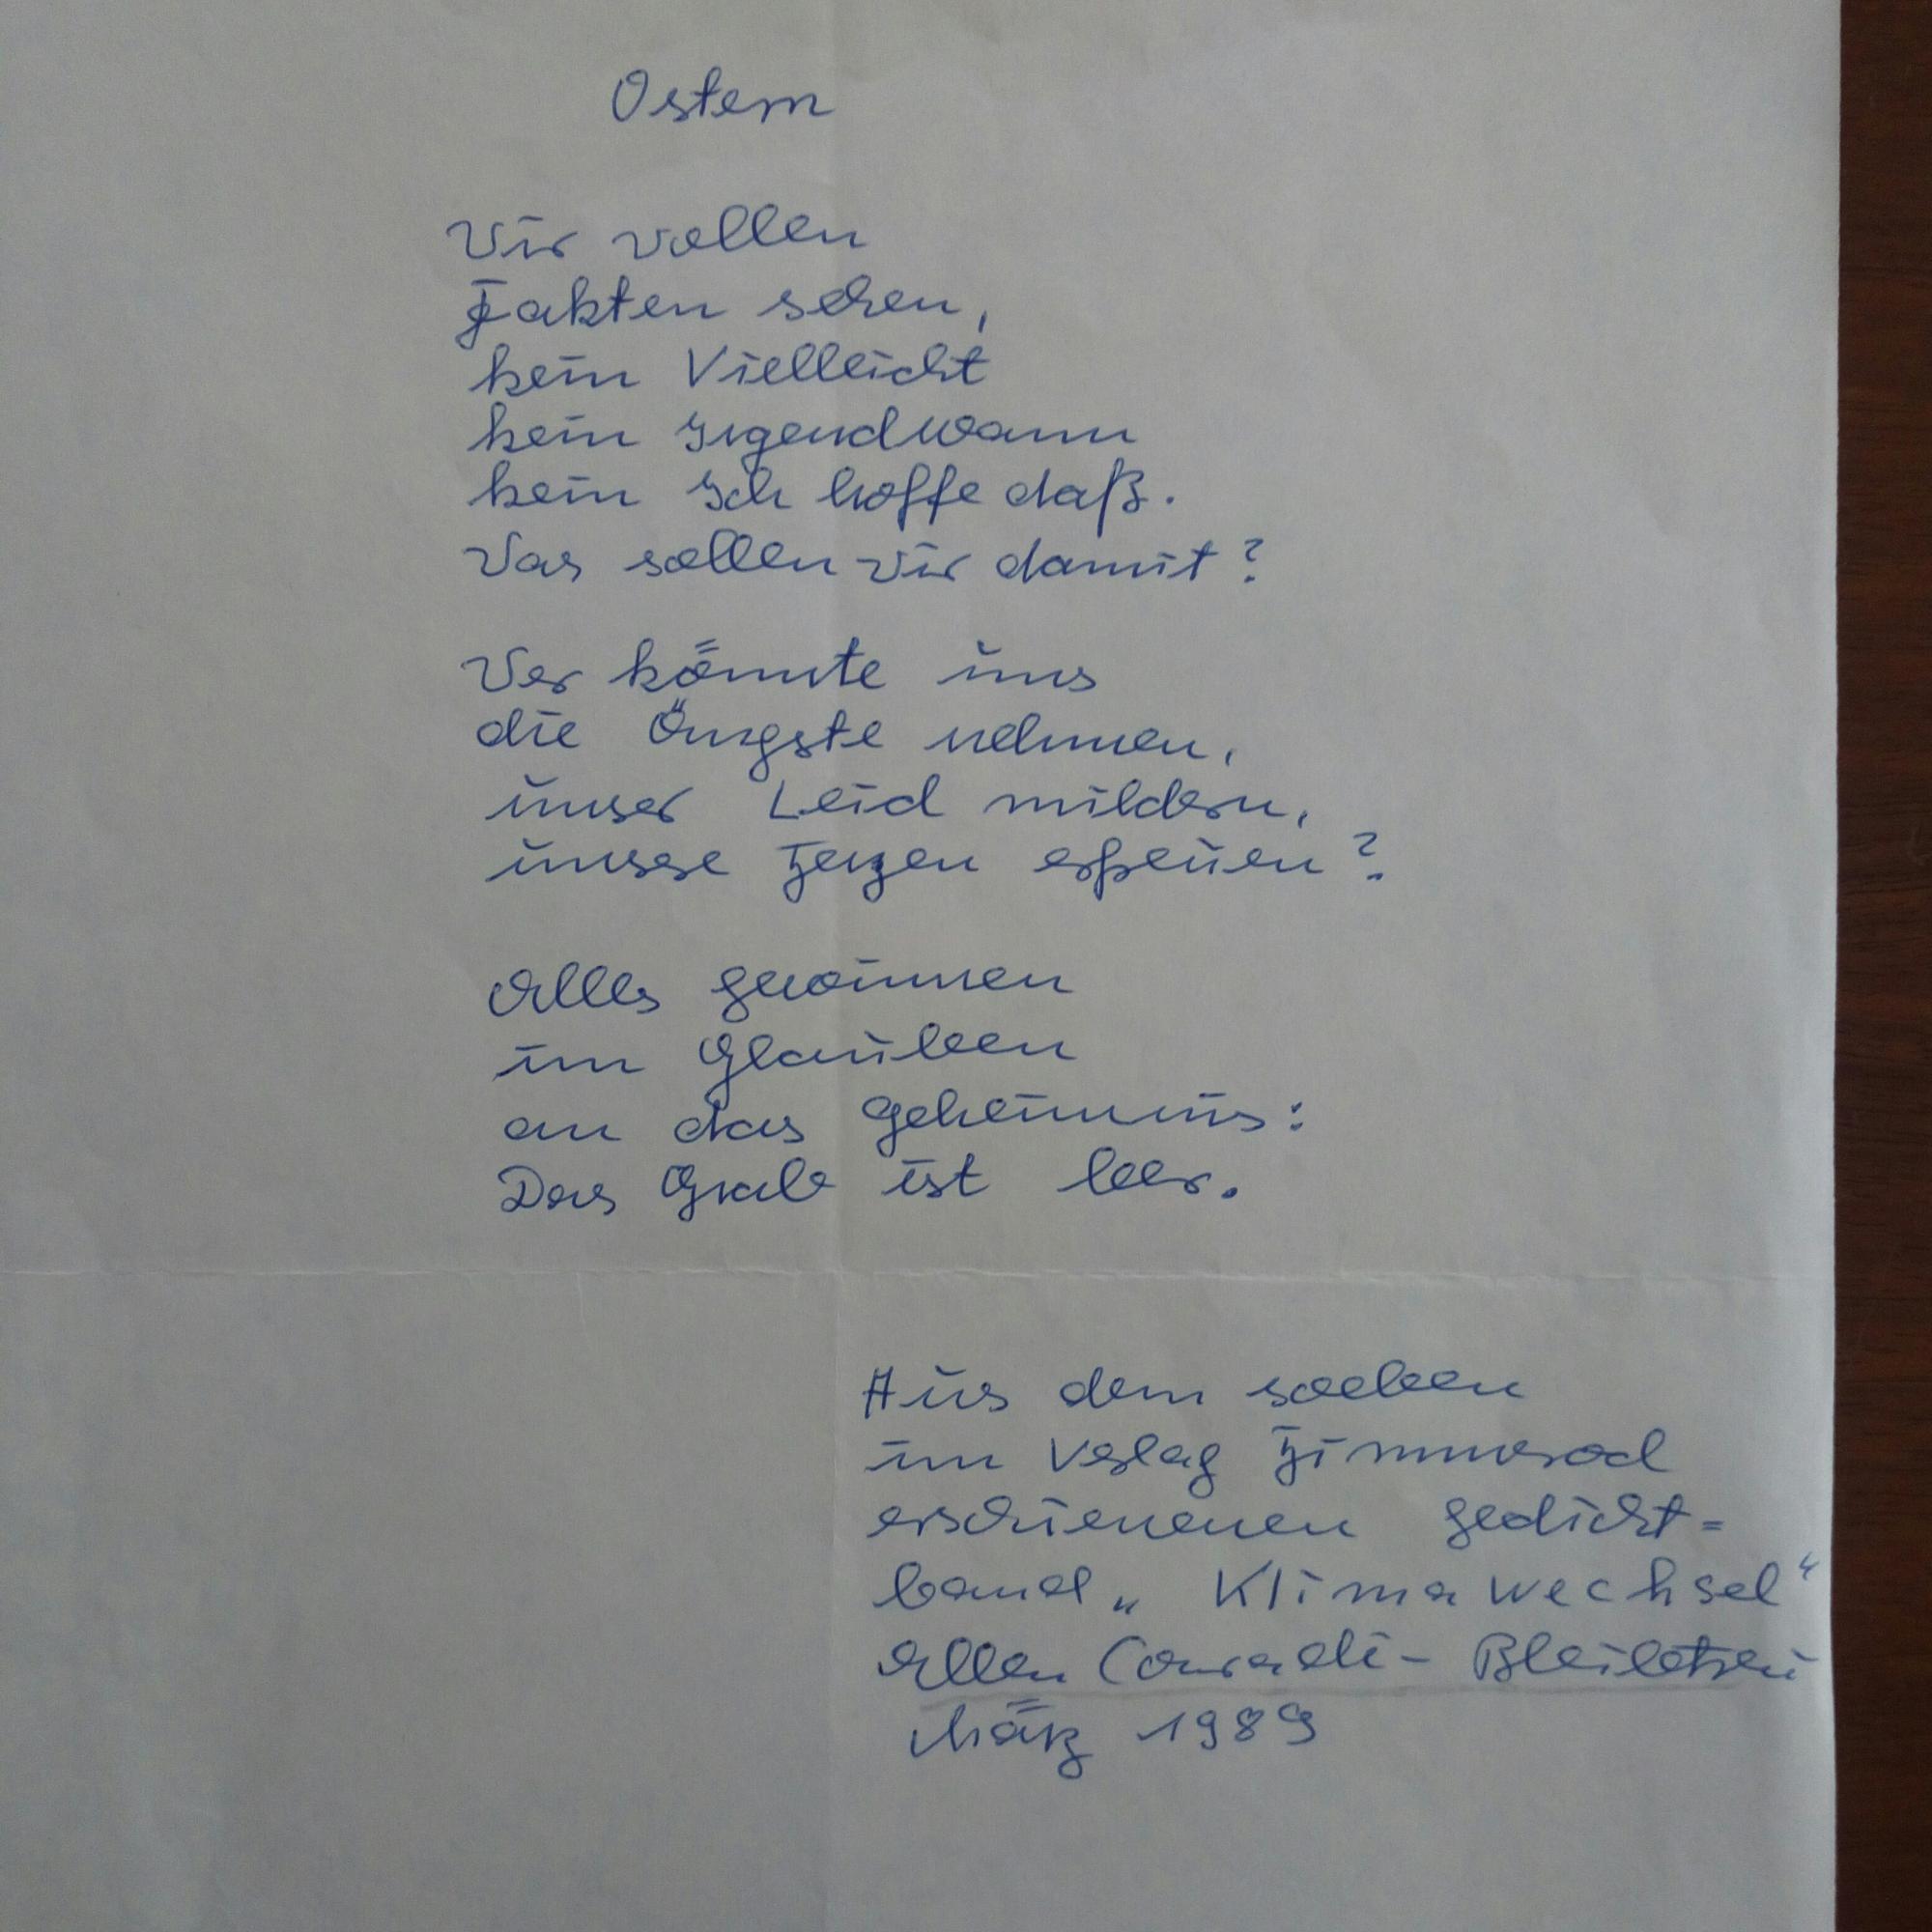 Ostern
Wir wollen
Fakten sehen,
kein Vielleicht
kein Irgendwann
kein Ich hoffe daß.
Was sollen wir damit?
Wer könnte uns
die Ängste nehmen,
unser Leid mildern,
unsere Herzen erfreuen?
Alles gewinnen
im Glauben
an das Geheimnis:
Das Grab ist leer.
Aus dem soeben
im Verlag Himmerod
erschienenen Gedicht=
band „Klimawechsel“
Ellen Conradi-
März 1989